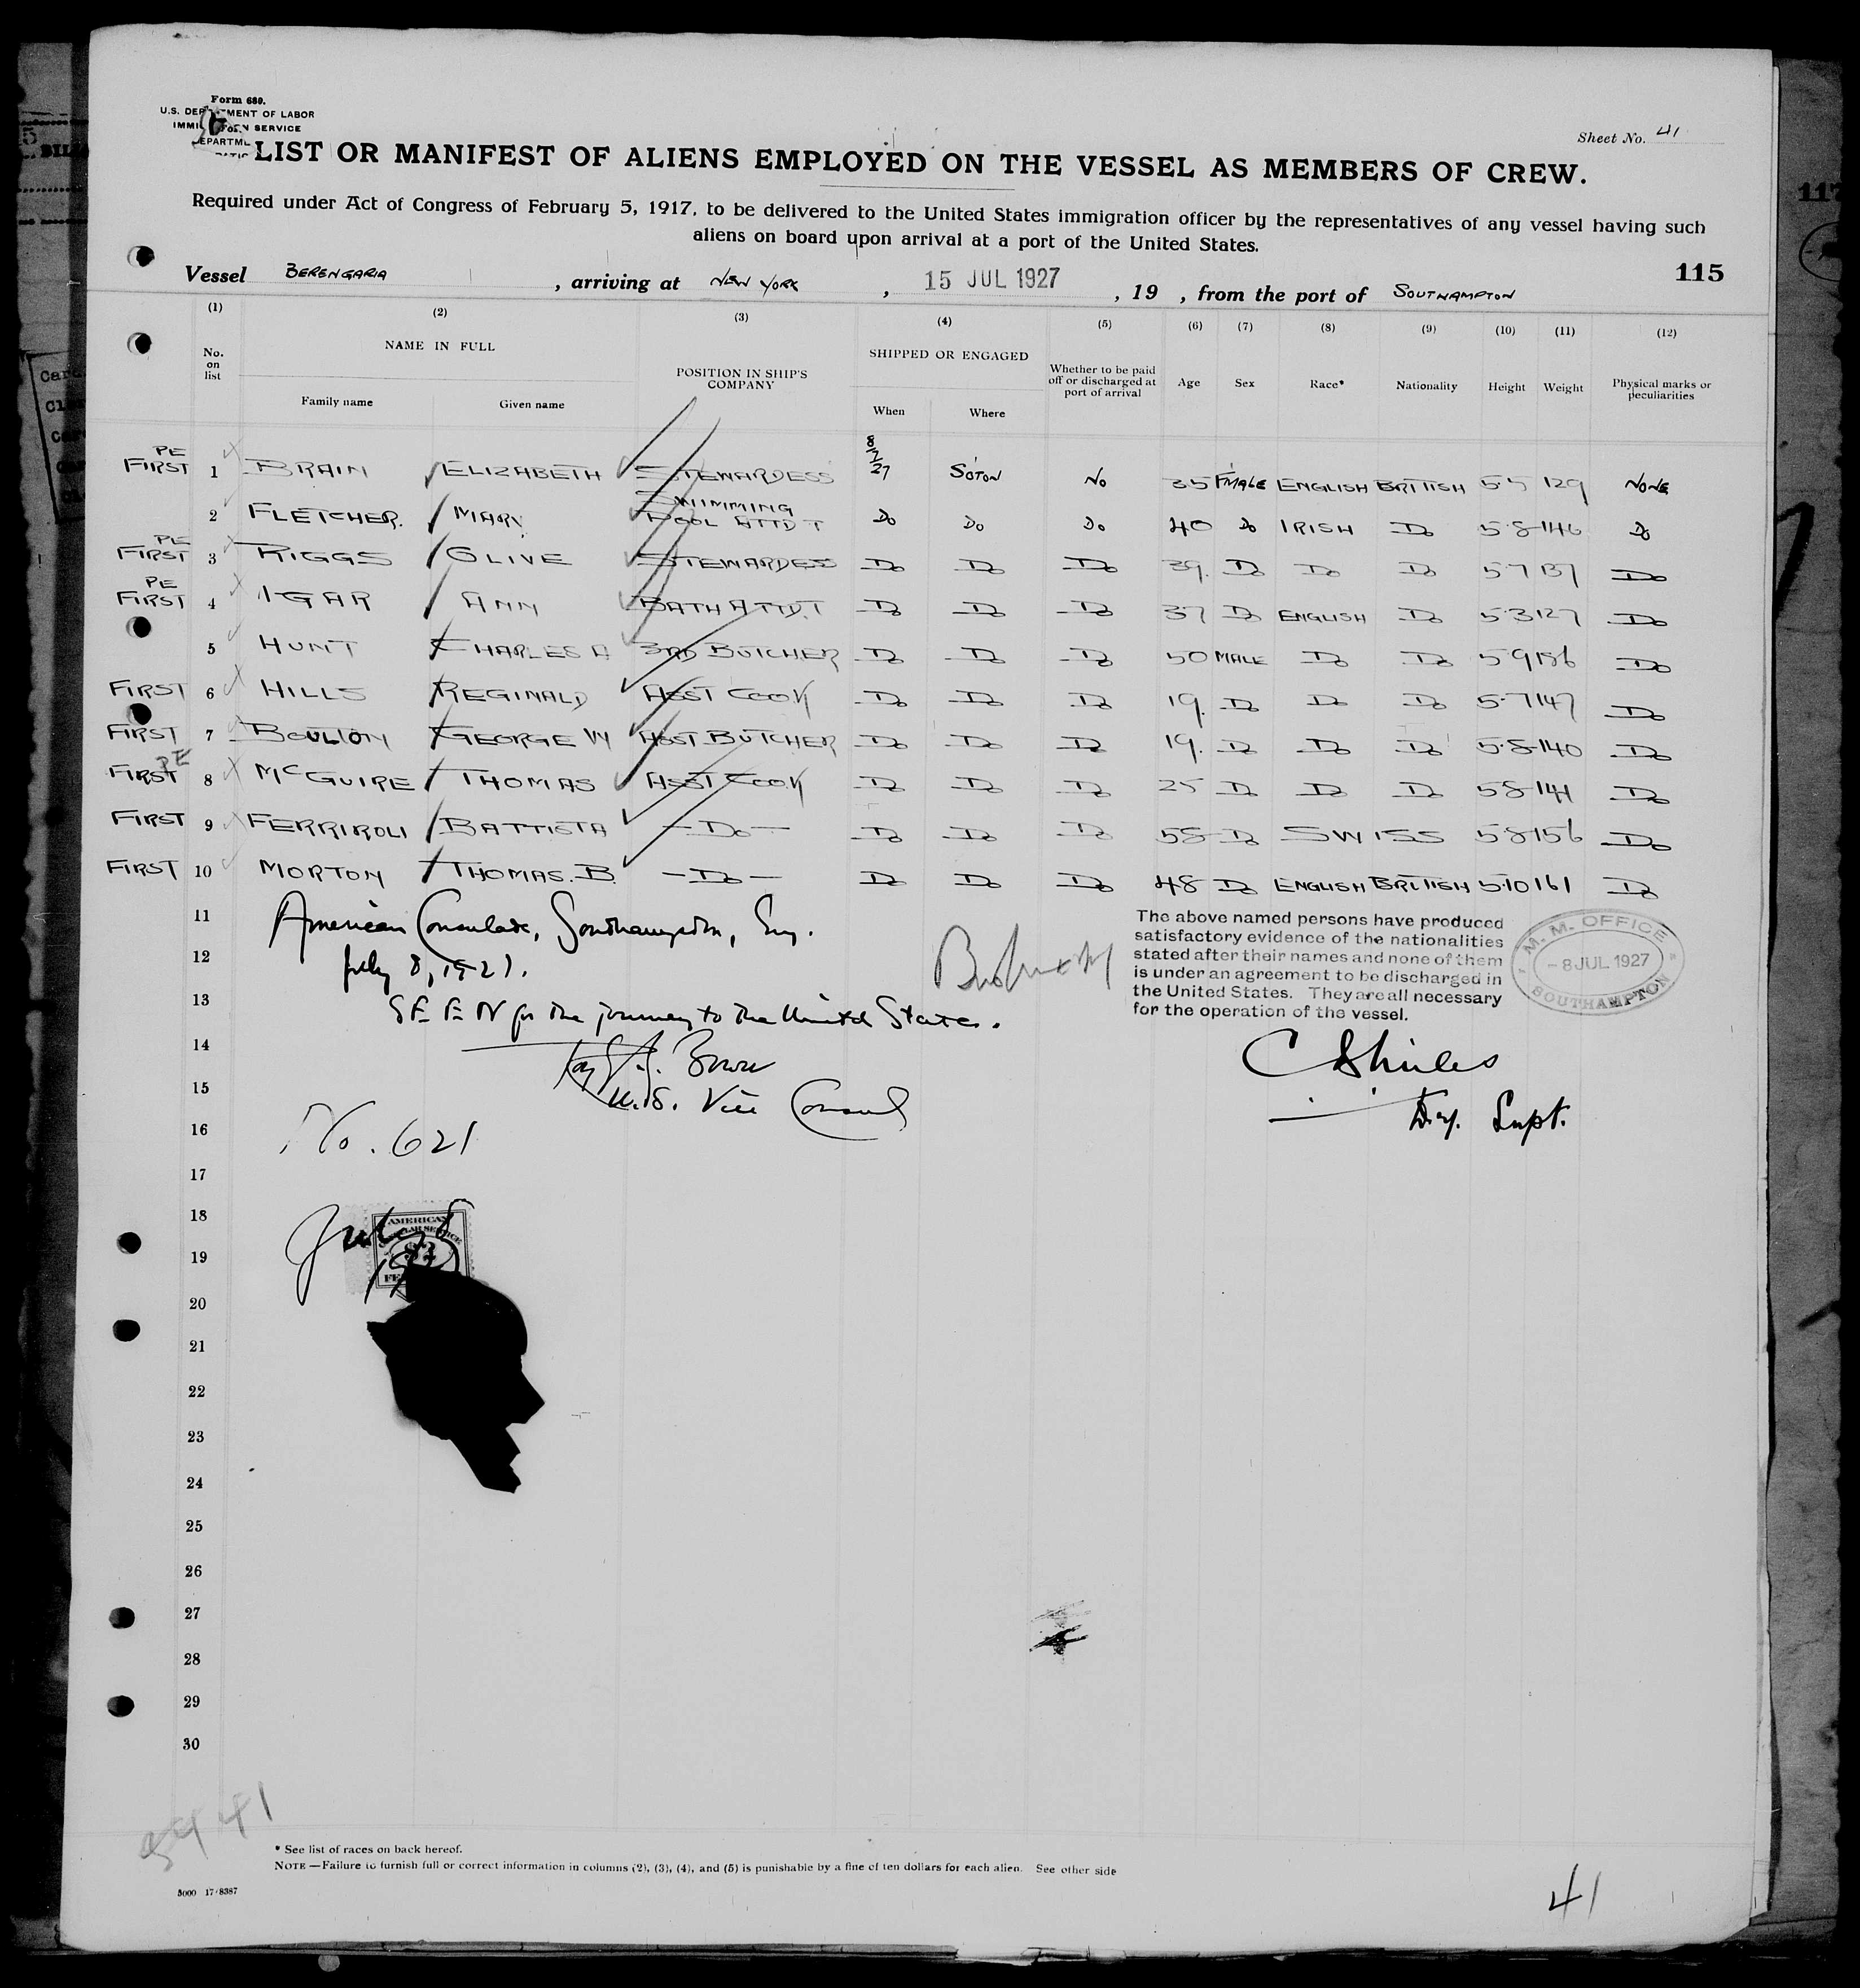 Form 680.
U.S. DEP MENT OF LABOR
IMMI SERVICE
Sheet No. 41
LIST OR MANIFEST OF ALIENS EMPLOYED ON THE VESSEL AS MEMBERS OF CREW.
Required under Act of Congress of February 5, 1917, to be delivered to the United States immigration officer by the representatives of any vessel having such
aliens on board upon arrival at a port of the United States.
115
Vessel BERENGARIA , arriving at NEW YORK , 15 JUL 1927 , 19 , from the port of SOUTHAMPTON
(1) (2) (3) (4) (5) (6) (7) (8) (9) (10) (11) (12)
No. on list NAME IN FULL POSITION IN SHIP'S COMPANY SHIPPED OR ENGAGED Whether to be paid off or discharged at port of arrival Age Sex Race* Nationality Height Weight Physical marks or peculiarities
Family name Given name When Where
PE FIRST 1 BRAIN ELIZABETH STEWARDESS 8/7/27 SOTON NO 35 FMALE ENGLISH BRITISH 5·5 129 NONE
2 FLETCHER. MARY SWIMMING POOL ATTDT DO DO DO 40 DO IRISH DO 5·8 146 DO
PE FIRST 3 RIGGS OLIVE STEWARDESS DO DO DO 39. DO DO DO 5·7 137 DO
PE FIRST 4 IGAR ANN BATH ATTD.T DO DO DO 37 DO ENGLISH DO 5·3 127 DO
5 HUNT CHARLES A 3RD BUTCHER DO DO DO 50 MALE DO DO 5·9 186 DO
FIRST 6 HILLS REGINALD ASST COOK DO DO DO 19. DO DO DO 5·7 147 DO
FIRST 7 BOULTON GEORGE W ASST BUTCHER DO DO DO 19. DO DO DO 5·8 140 DO
PE FIRST 8 McGUIRE THOMAS ASST COOK DO DO DO 25 DO DO DO 5·8 141 DO
FIRST 9 FERRIROLI BATTISTA —DO— DO DO DO 58 DO SWISS 5·8 156 DO
FIRST 10 MORTON THOMAS. B. —DO— DO DO DO 48 DO ENGLISH BRITISH 5·10 161 DO
11 American Consulate, Southampton, Eng.
12 July 8, 1927.
13 SEEN for the journey to the United States.
14
15 U.S. Vice Consul
16 No. 621
The above named persons have produced
satisfactory evidence of the nationalities
stated after their names and none of them
is under an agreement to be discharged in
the United States. They are all necessary
for the operation of the vessel.
M. M. OFFICE
-8 JUL 1927
SOUTHAMPTON
Dep. Supt.
17
18 July 8
19 192
AMERICAN
$2
FE
20
21
22
23
24
25
26
27
28
29
30
41
* See list of races on back hereof.
NOTE—Failure to furnish full or correct information in columns (2), (3), (4), and (5) is punishable by a fine of ten dollars for each alien. See other side
5000 17/8387
41